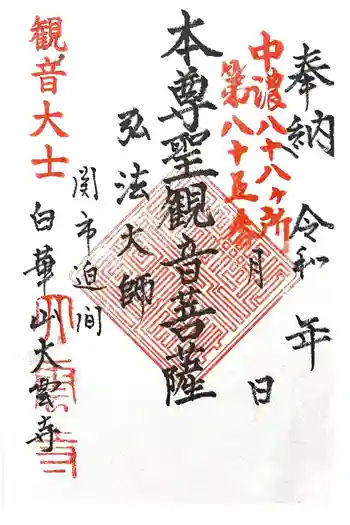 奉納 令和 年
月 日
中濃八十八ヶ所
第八十五番
本尊聖観音菩薩
弘法大師
観音大士
関市迫間
白華山大雲寺